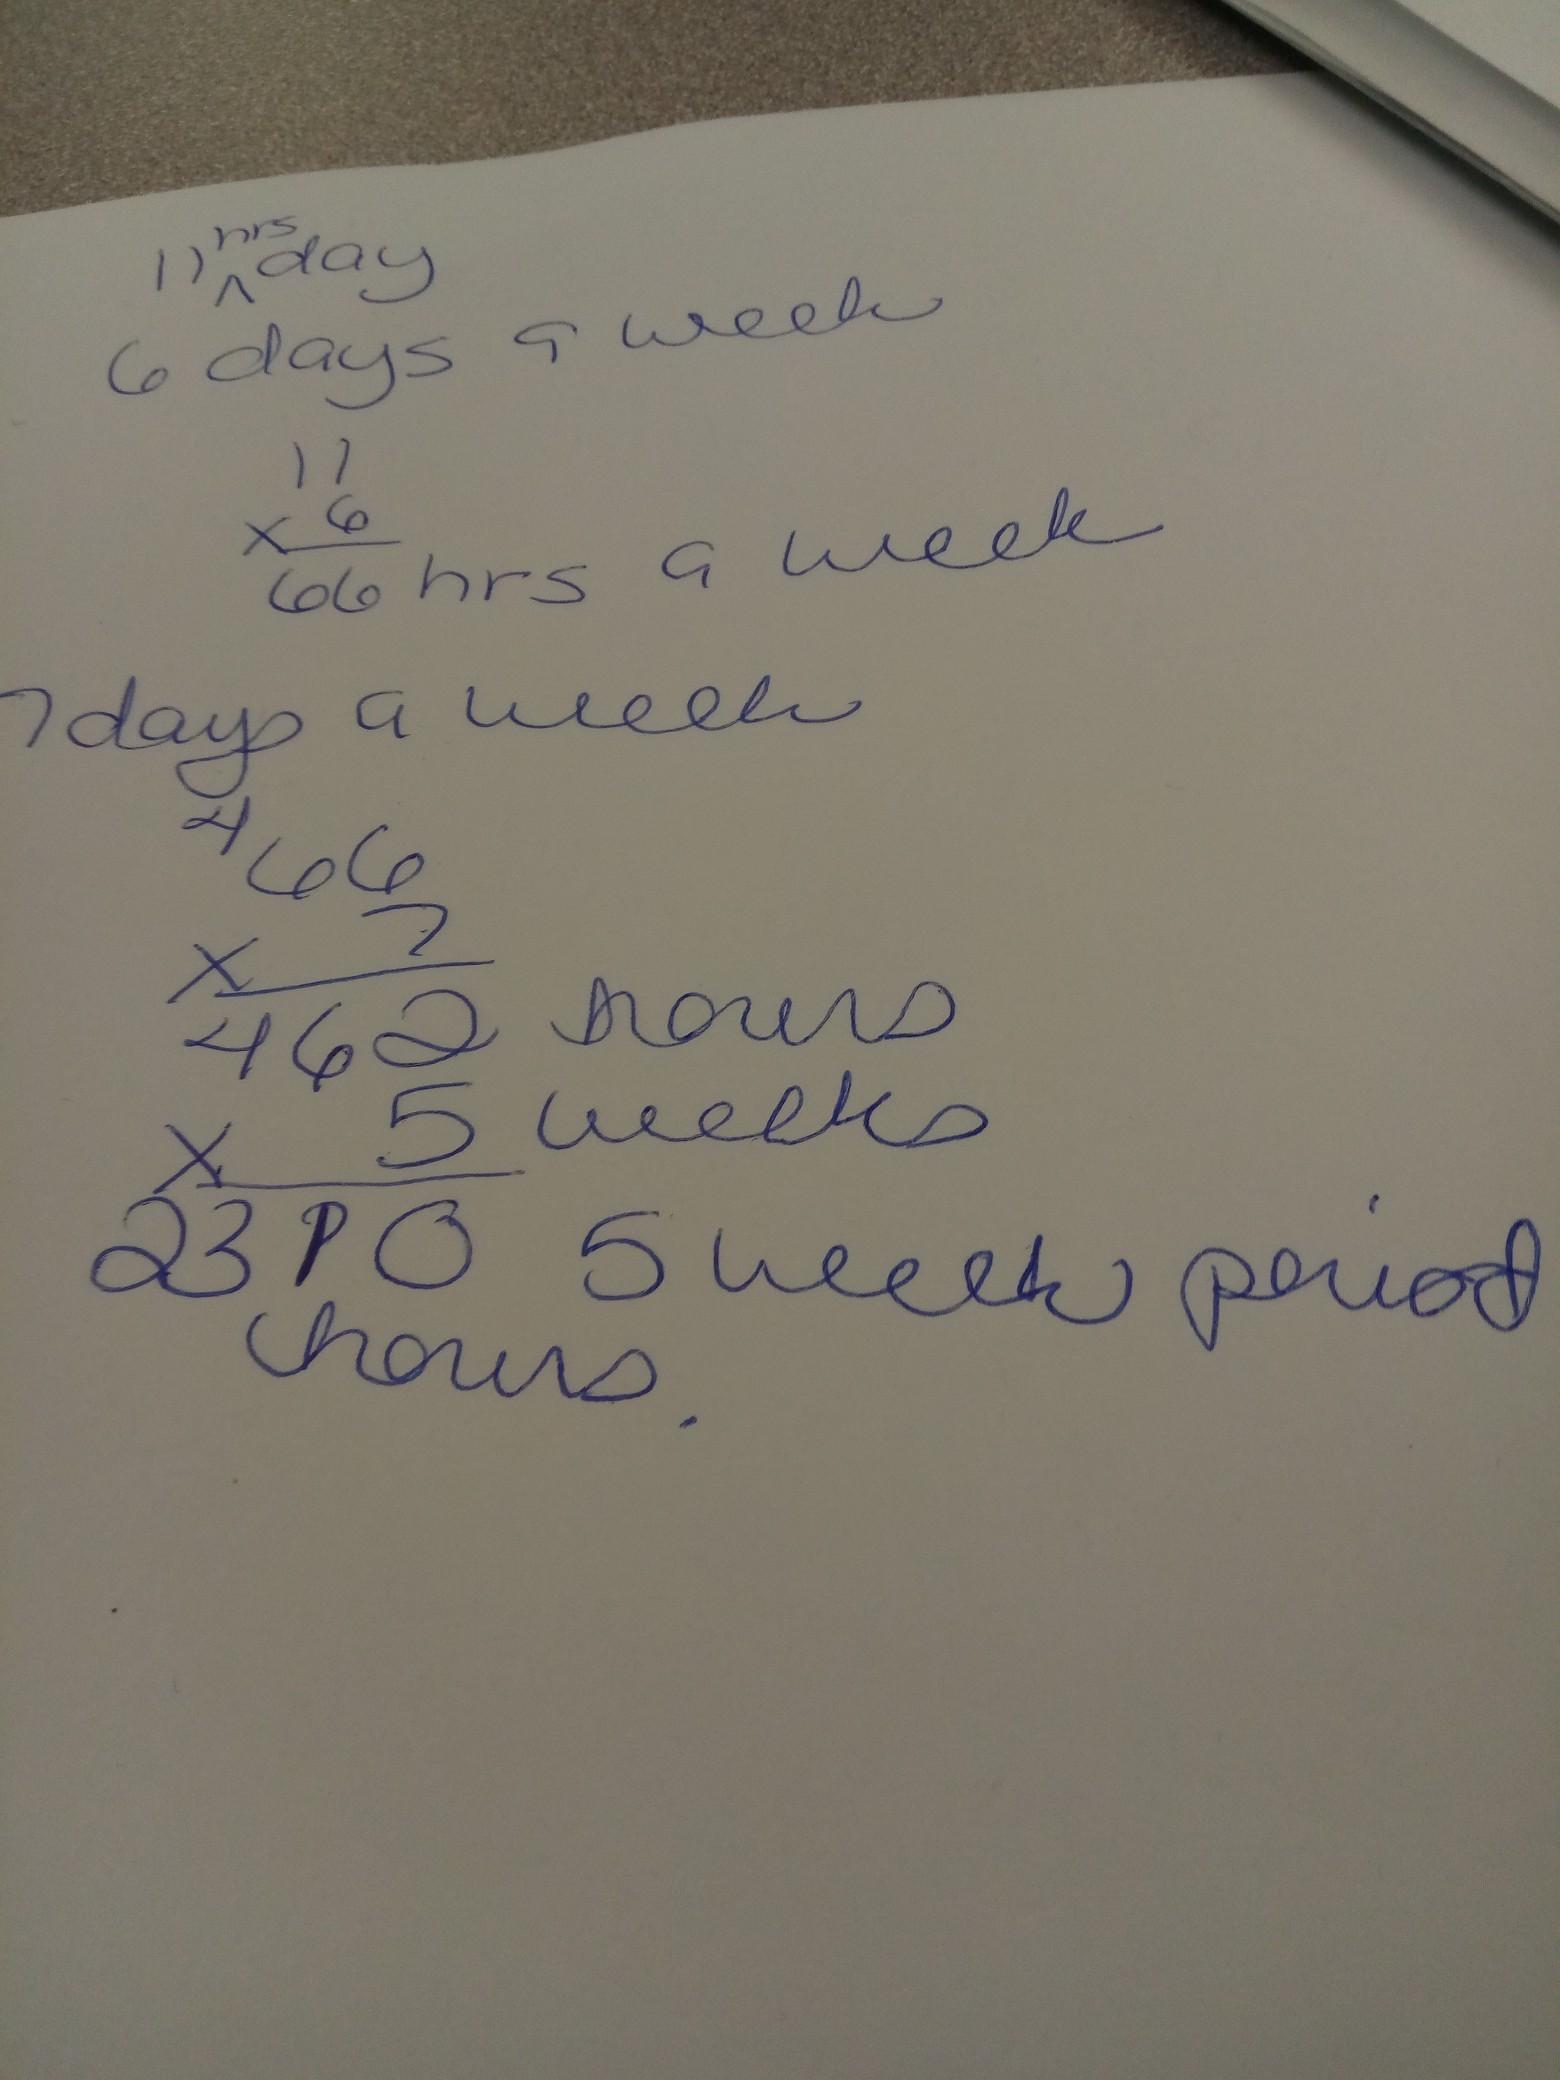 11 hrs day
6 days a week
11
x 6
66 hrs a week
7 days a week
4
66
x 7
462 hours
x 5 weeks
2310 5 week period
hours.